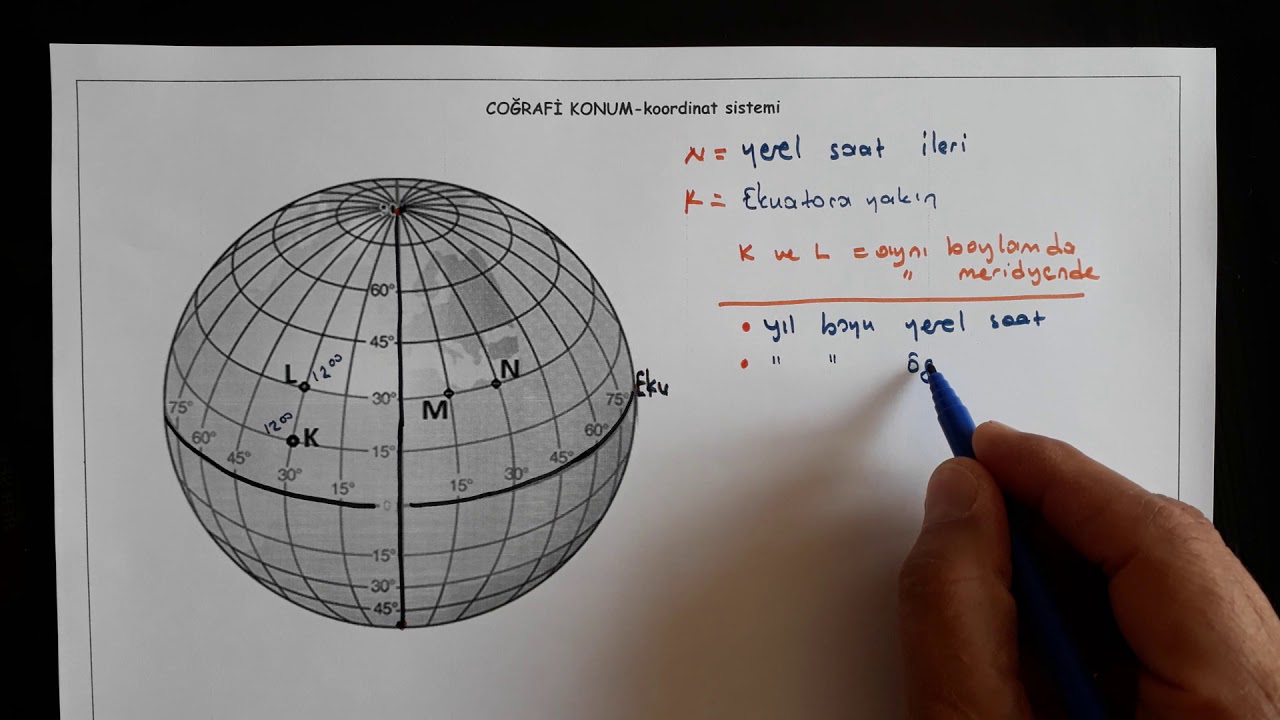 COĞRAFİ KONUM-koordinat sistemi
N = yerel saat ileri
K = Ekuatora yakın
K ve L = aynı boylamda
" meridyende
• yıl boyu yerel saat
• " " öğ
60°
45°
L 12⁰⁰
N
30°
M
Eku
75°
75°
12⁰⁰ K
60°
15°
60°
45°
45°
30°
30°
15°
15°
0
15°
30°
45°